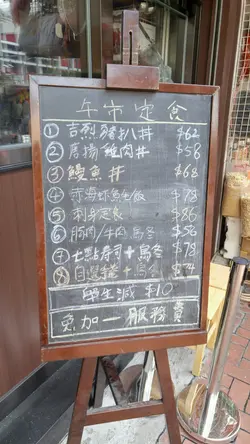 午市定食
① 吉烈豬扒丼 $62
② 唐揚雞肉丼 $56
③ 鰻魚丼 $68
④ 赤海蝦魚生飯 $78
⑤ 刺身定食 $86
⑥ 豚肉/牛肉烏冬 $56
⑦ 七點壽司+烏冬 $78
⑧ 自選手卷+烏冬 $74
學生減 $10
免加一服務費